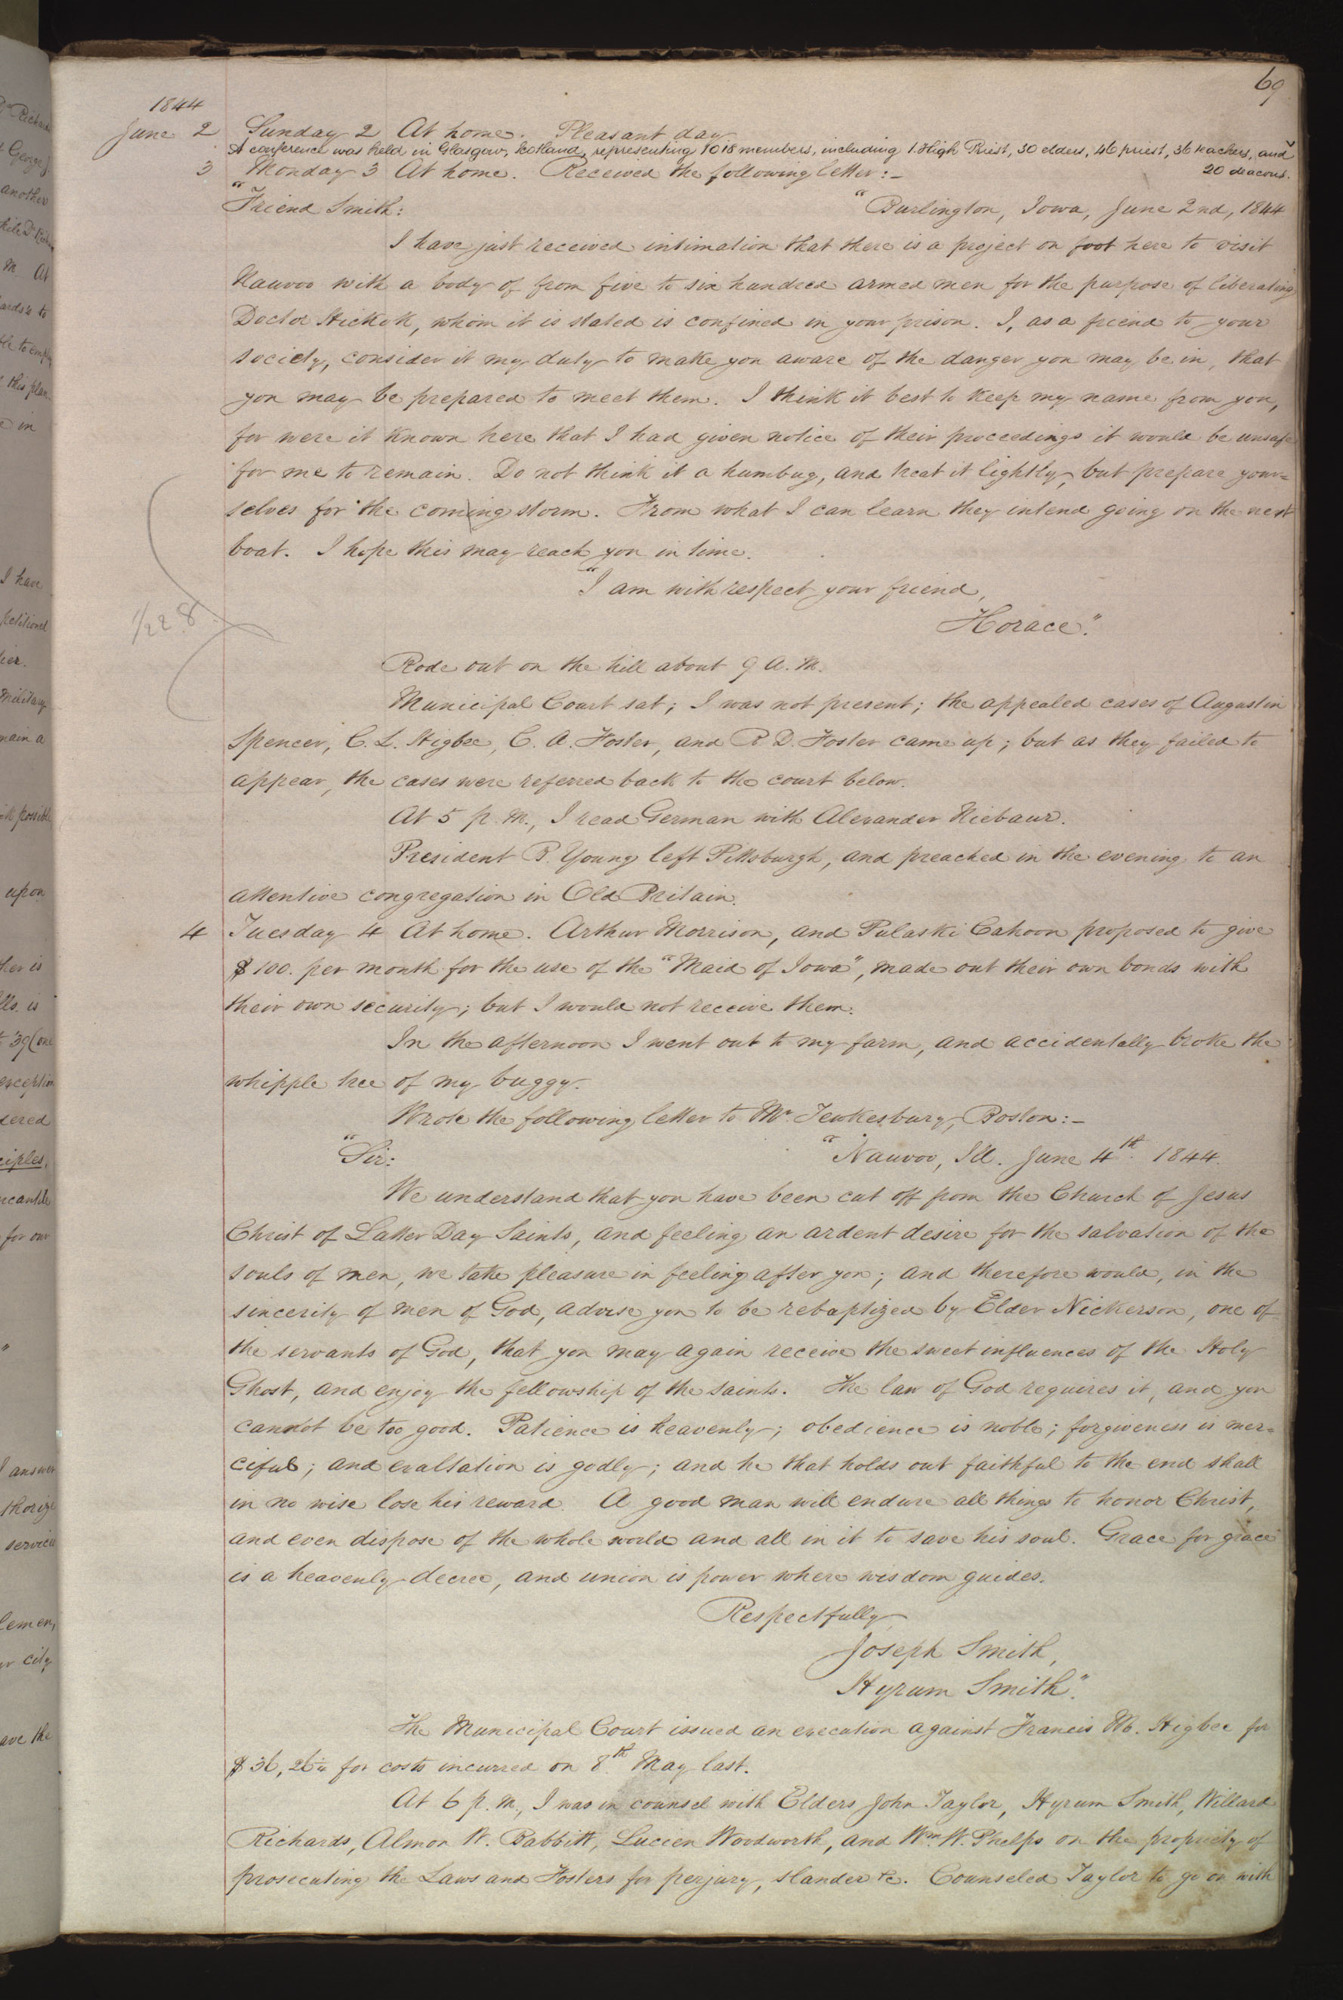 69
1844
June 2 Sunday 2 At home. Pleasant day
A conference was held in Glasgow, Scotland, representing 1018 members, including 1 High Priest, 30 elders, 46 priest, 36 teachers, and
20 deacons.
3 Monday 3 At home. Received the following letter:-
"Friend Smith: "Burlington, Iowa, June 2nd, 1844
I have just received intimation that there is a project on foot here to visit
Nauvoo with a body of from five to six hundred armed men for the purpose of liberating
Doctor Hickok, whom it is stated is confined in your prison. I, as a friend to your
society, consider it my duty to make you aware of the danger you may be in, that
you may be prepared to meet them. I think it best to keep my name from you,
for were it known here that I had given notice of their proceedings it would be unsafe
for me to remain. Do not think it a humbug, and treat it lightly, but prepare your=
selves for the coming storm. From what I can learn they intend going on the next
boat. I hope this may reach you in time.
"I am with respect your friend,
Horace."
1/228
Rode out on the hill about 9 A.M.
Municipal Court sat; I was not present; the appealed cases of Augustin
Spencer, C. L. Higbee, C. A. Foster, and R D. Foster came up; but as they failed to
appear, the cases were referred back to the court below.
At 5 p. m., I read German with Alexander Niebaur.
President B. Young left Pittsburgh, and preached in the evening to an
attentive congregation in Old Britain.
4 Tuesday 4 At home. Arthur Morrison, and Pulaski Cahoon proposed to give
$100. per month for the use of the "Maid of Iowa", made out their own bonds with
their own security; but I would not receive them.
In the afternoon I went out to my farm, and accidentally broke the
whipple tree of my buggy.
Wrote the following letter to Mr. Tewkesbury, Boston:-
"Sir: "Nauvoo, Ill. June 4th. 1844.
We understand that you have been cut off from the Church of Jesus
Christ of Latter Day Saints, and feeling an ardent desire for the salvation of the
souls of men, we take pleasure in feeling after you; and therefore would, in the
sincerity of men of God, advise you to be rebaptized by Elder Nickerson, one of
the servants of God, that you may again receive the sweet influences of the Holy
Ghost, and enjoy the fellowship of the saints. The law of God requires it, and you
cannot be too good. Patience is heavenly; obedience is noble; forgiveness is mer=
ciful; and exaltation is godly; and he that holds out faithful to the end shall
in no wise lose his reward. A good man will endure all things to honor Christ,
and even dispose of the whole world and all in it to save his soul. Grace for grace
is a heavenly decree, and union is power where wisdom guides.
Respectfully
Joseph Smith,
Hyrum Smith."
The Municipal Court issued an execution against Francis M. Higbee for
$36, 26 for costs incurred on 8th May last.
At 6 p. m., I was in counsel with Elders John Taylor, Hyrum Smith, Willard
Richards, Almon W. Babbitt, Lucien Woodworth, and Wm. W. Phelps on the propriety of
prosecuting the Laws and Fosters for perjury, slander &c. Counseled Taylor to go on with